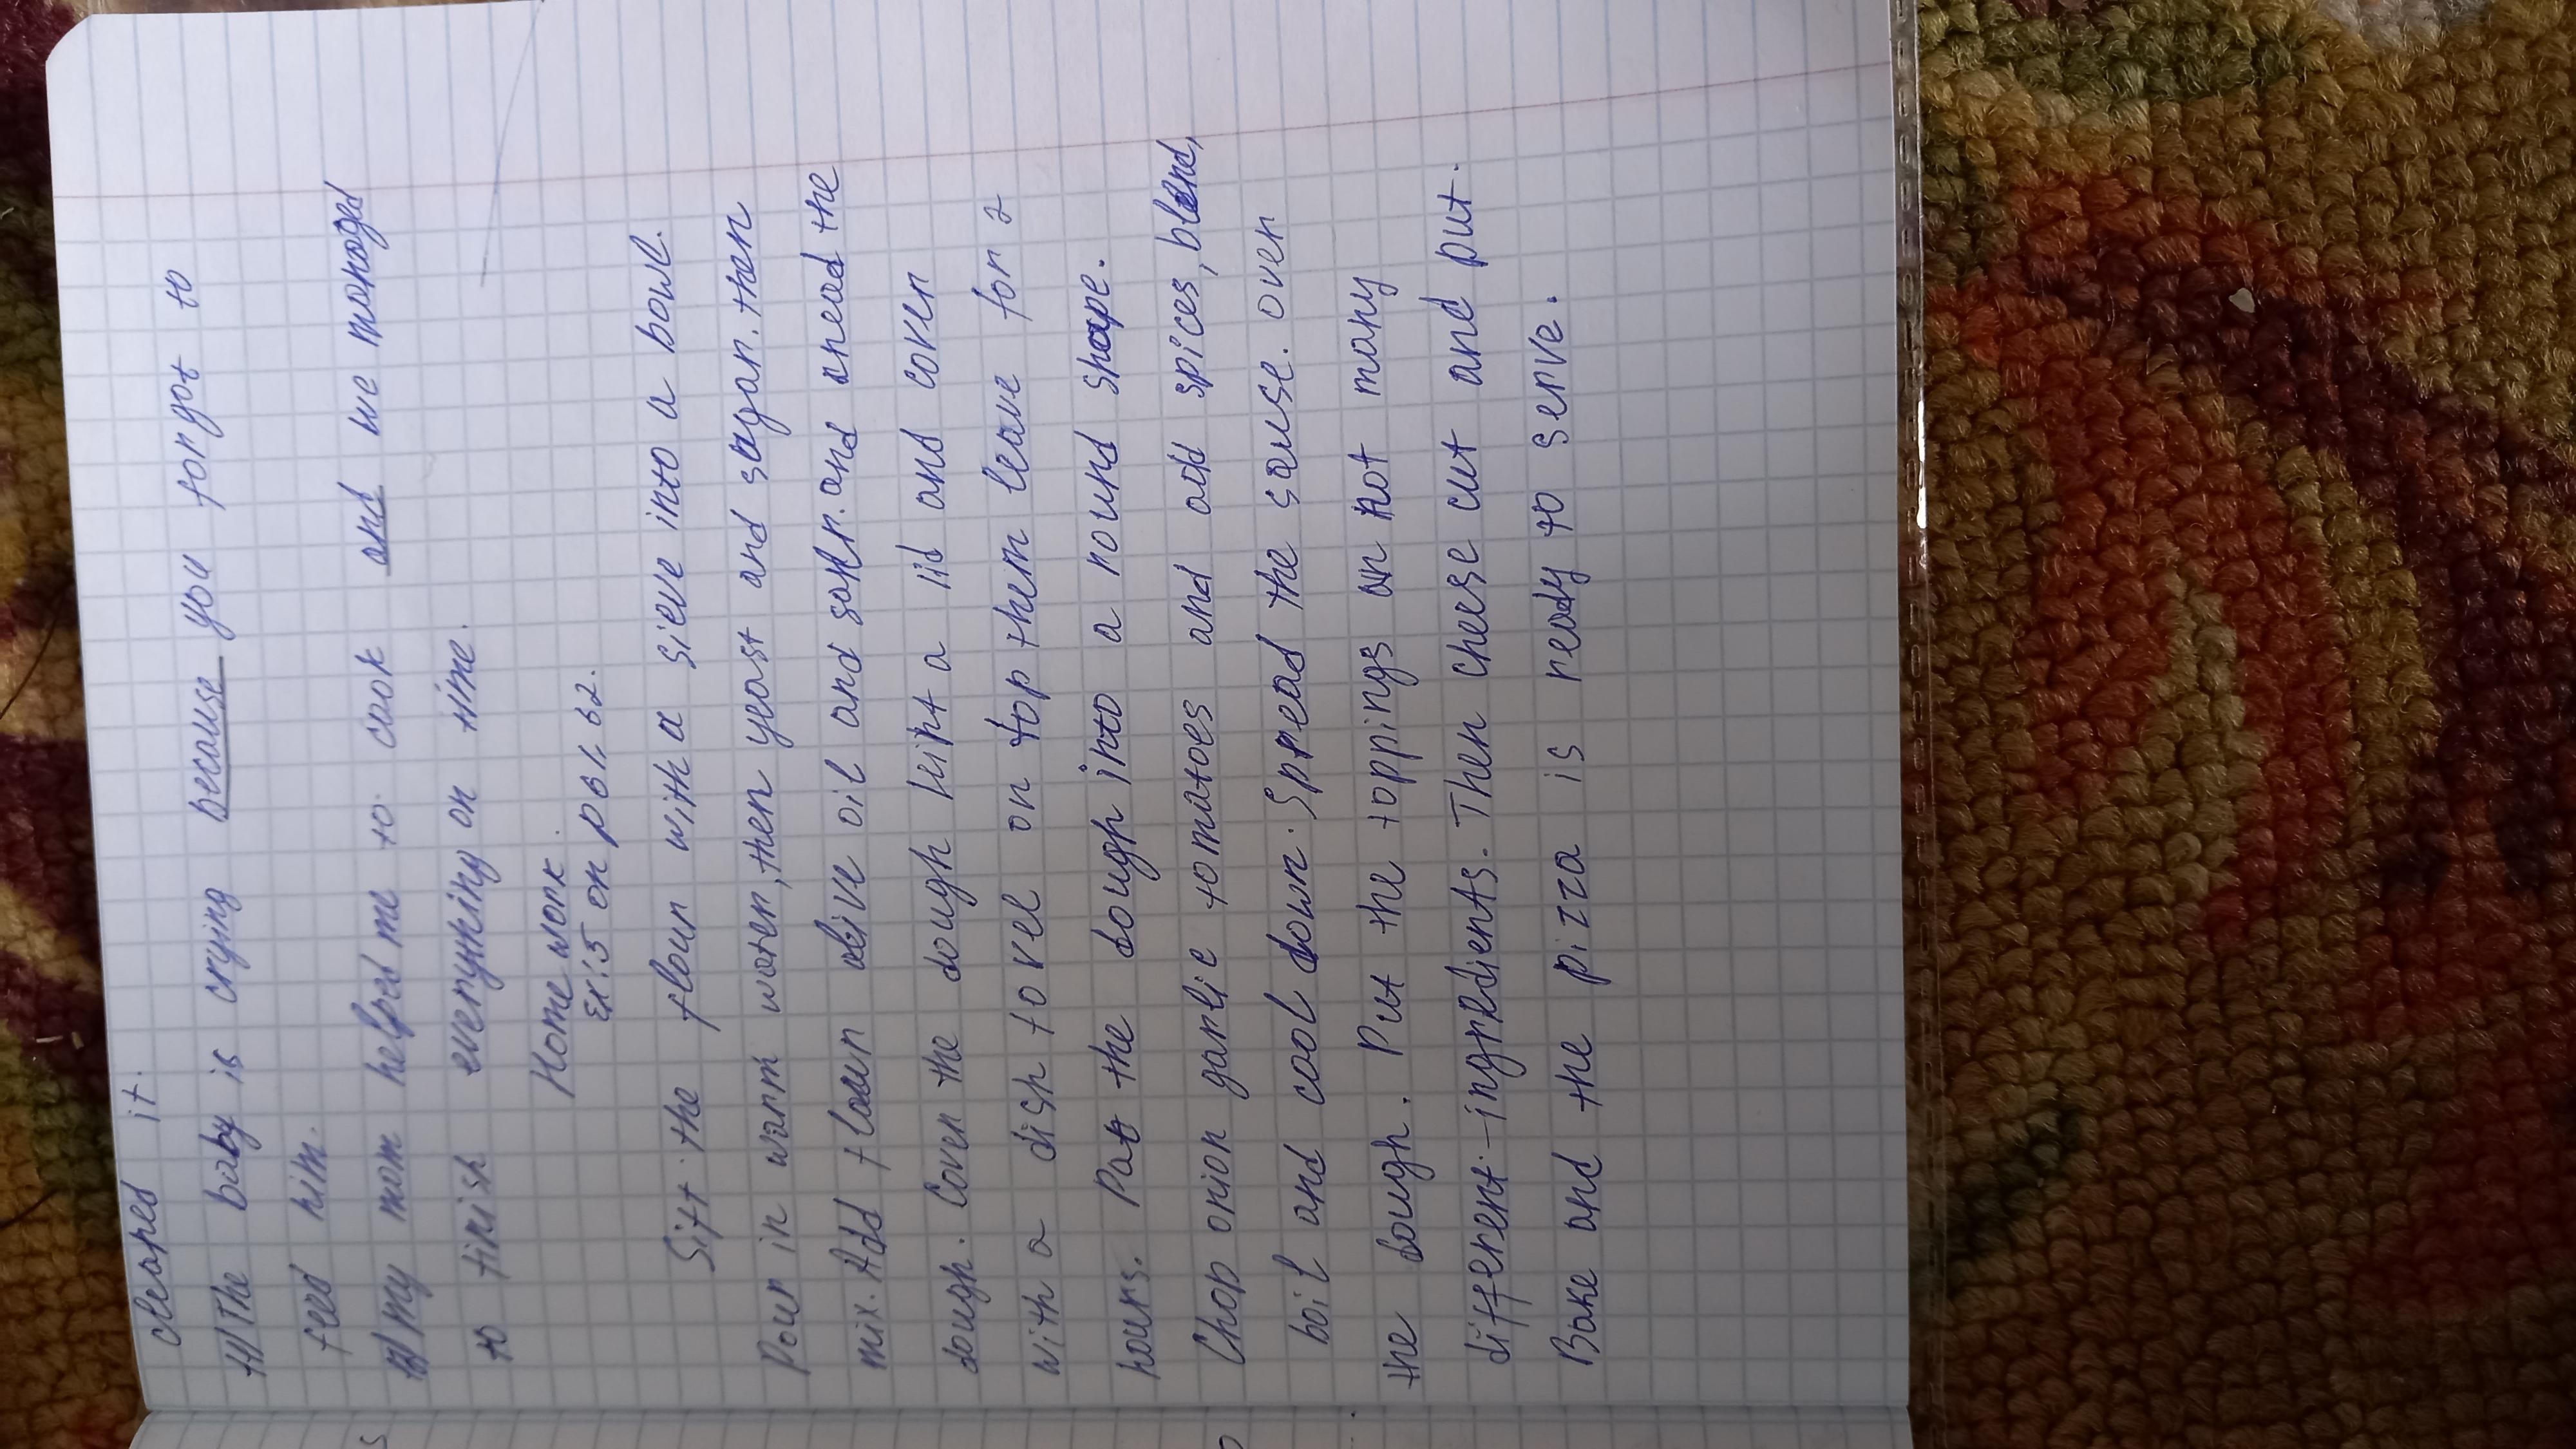 cleaned it.
4) The baby is crying because you forgot to
feed him.
5) my mom helped me to cook and we managed
to finish everything on time.
Home work.
Ex: 5 on p 82.
Sift the flour with a sieve into a bowl.
Pour in warm water, then yeast and sugar. then
mix. Add flour olive oil and and knead the
dough. Cover the dough with a lid and cover
with a dish tovel on top them leave for 2
hours. Pat the dough into a round shape.
Chop onion garlic tomatoes and add spices, blend,
boil and cool down. Spread the sause. over
the dough. Put the toppings or not many
different - ingredients. Then cheese cut and put.
Bake and the pizza is ready to serve.